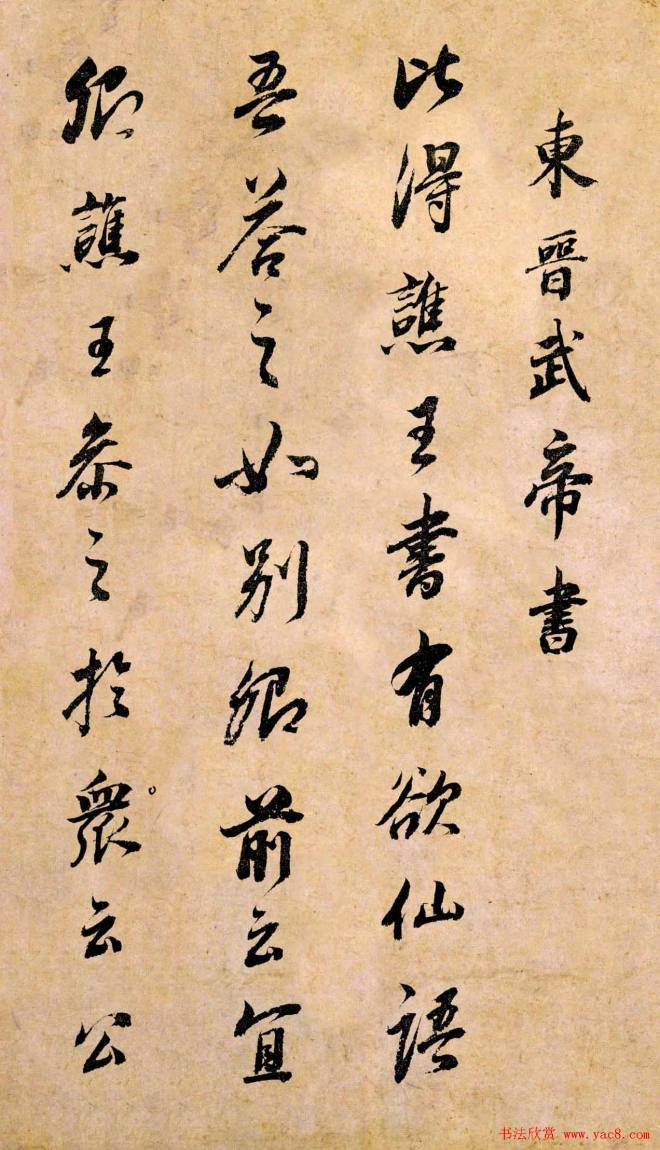 東晉武帝書
比得譙王書有欲仙語
吾答之如別卿前云宜
卿譙王恭之於眾云公
书法欣赏 www.yac8.com